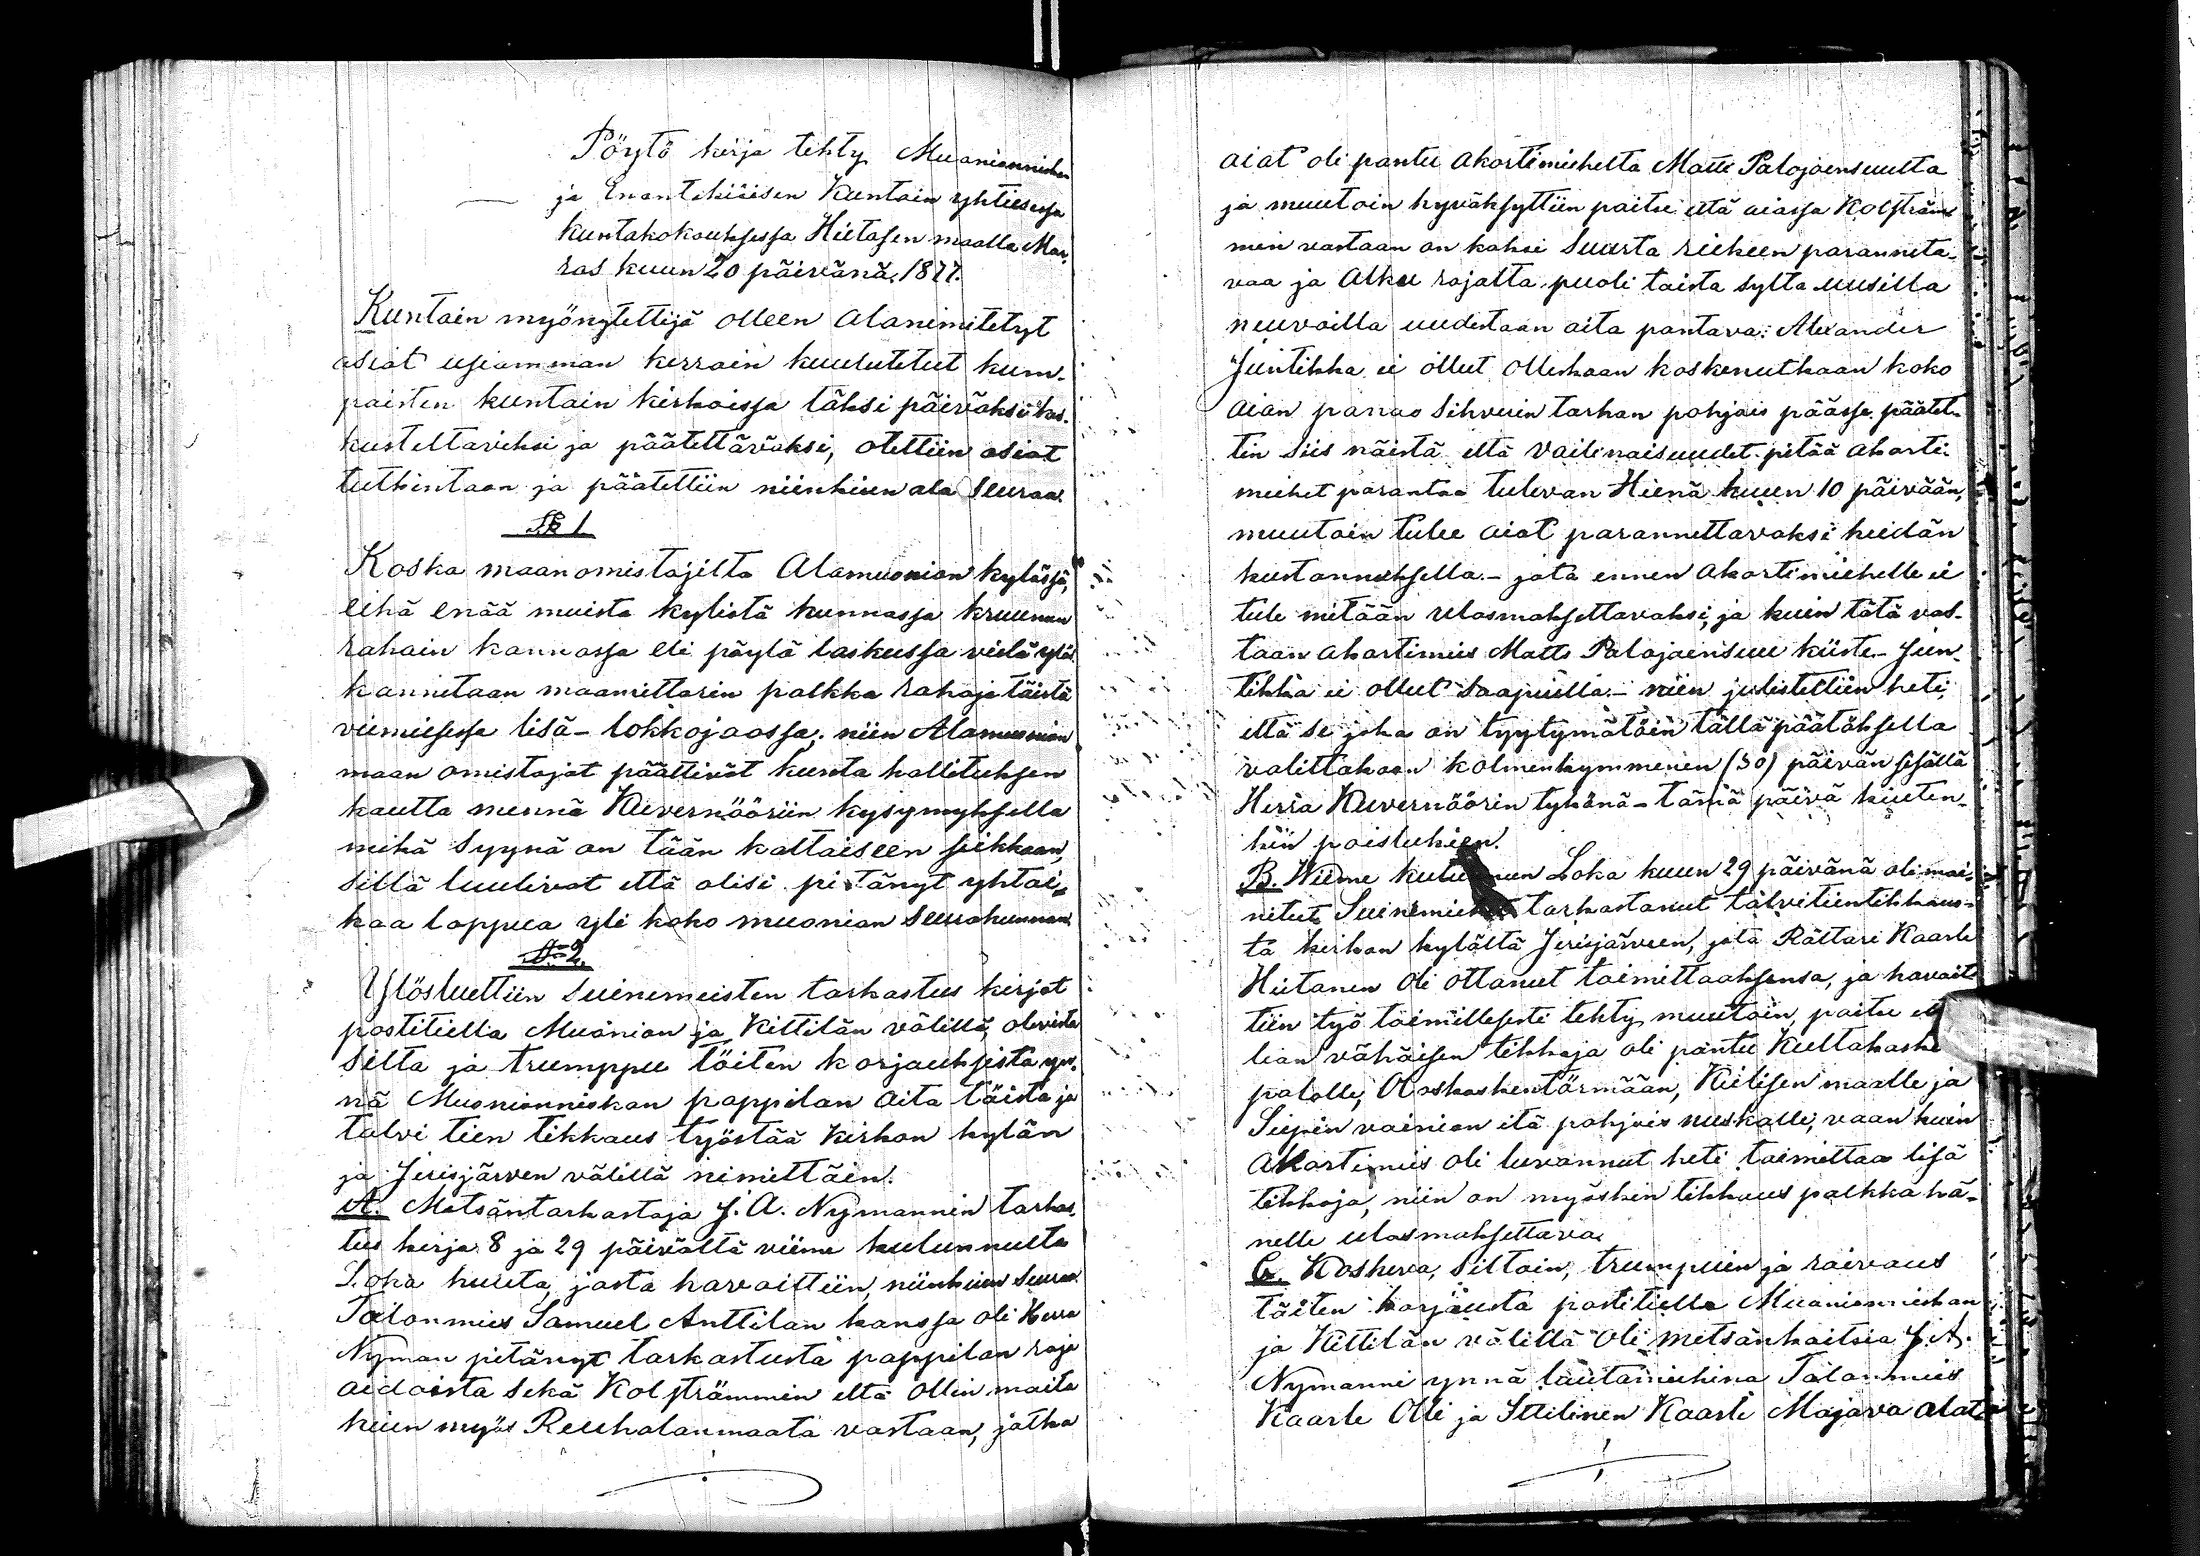 Pöytä kirja tehty Muonionniskan
ja Enontekiäisen Kuntain yhtiesessa
kuntakokouksessa Hietasen maalla Mar-
ras kuun 20 päivänä, 1877.
Kuntain myönytettijä olleen alanimitetyt
asiat usiamman kerrain kuulutetut kum-
paisten kuntain kirkoissa täksi päiväksi kes-
kusteltaviksi ja päätettäväksi, otettiin asiat
tutkintaan ja päätettiin niinkuin ala Seuraa.
§ 1
Koska maanomistajilta Alamuonion kylässä,
eikä enää muista kylistä kunnassa kruunun
rahain kannossa eli pöytä laskussa vielä ylös
kannetaan maamittarin palkka rahoja täistä
viimeisessa lisä-lohkojaossa, niin Alamuonion
maan omistajat päättivät kunta hallituksen
kautta mennä Kuvernööriin kysymyksella
mikä Syynä on tään kaltaiseen seikkaan,
Sillä luulivat että olisi pitänyt yhtai-
kaa loppua yli koko muonion Seurakunnan.
§ 2.
Ylösluettiin Suinemiesten tarkastus kirjat
postitiella Muonion ja Kittilän välillä, olevista
Silta ja trumppu töiten korjauksista yn-
nä Muonionniskan pappilan Aita töistä ja
talvi tien tikkaus työstää Kirkon kylän
ja Jerisjärven välillä nimittäin:
A. Metsäntarkastaja J. A. Nymannin tarkas-
tus kirja 8 ja 29 päivältä viime kulunnutta
Loka kuuta, josta havaittiin, niinkuin Seuraa.
Talonmies Samuel Anttilan kanssa oli Herra
Nyman pitänyt tarkastusta pappilan raja
aidoista Sekä Kolströmmin että Ollin maita
kuin myös Reuhalanmaata vastaan, jotka
aiat oli pantu akortimiehelta Matts Palojoensuulta
ja muutoin hyväksyttiin paitsi että aiassa Kolström
min vastaan on kaksi Suurta reikeen parannetta-
vaa ja Alku rajalta puoli toista sylta uusilla
neuvoilla uudestaan aita pantava: Alexander
Juntikka ei ollut Ollenkaan koskenutkaan koko
Aian panao Sihvuin tarhan pohjois päässa, päätet-
tin Siis näistä että Vailinaisuudet pitää akorti-
miehet parantaa tulevan Hienä kuun 10 päivään,
muutoin tulee aiat parannettavaksi heidän
kustannuksella – jota ennen Akortimiehelle ei
tule mitään Ulosmaksettavaksi, ja kuin tätä vas-
taan akortimies Matts Palojoensuu kiiste – Jun-
tikka ei ollut Saapuilla – niin julistettiin heti
että se joka on tyytymätöin tällä päätöksella
valittakaan kolmenkymmenen (30) päivän sisällä
Herra Kuvernöörin tykönä – tämä päivä kuiten-
kin poislukien.
B. Wiime kulunnen Loka kuun 29 päivänä oli mai-
nitut Suinemiehet tarkastanut talvitientikkaus-
ta kirkon kylältä Jerisjärveen, jota Rättäri Kaarle
Hietanen Oli Ottanut toimittaaksensa, ja havait-
tiin työ toimillisesti tehty muutoin, paitsi et
lian vähäisen tikkoja oli pantu Kultakaske
palolle, Kietisen maalle ja
Siepin vainion itä pohjois nuskalle, vaan kuin
Akortimies oli luvannut heti toimittaa lisä
tikkoja, niin on myöskin tikkaus palkka hä-
nelle ulosmaksettava.
C. Koskeva, Siltain, trumpuin ja raivaus
töiten korjausta postitiella Muonionniskan
ja Kittilän välillä Oli metsänhaitsia J. A.
Nymanni ynnä lautamiehina Talonmies
Kaarle Olli ja Itellinen Kaarle Majava alat-